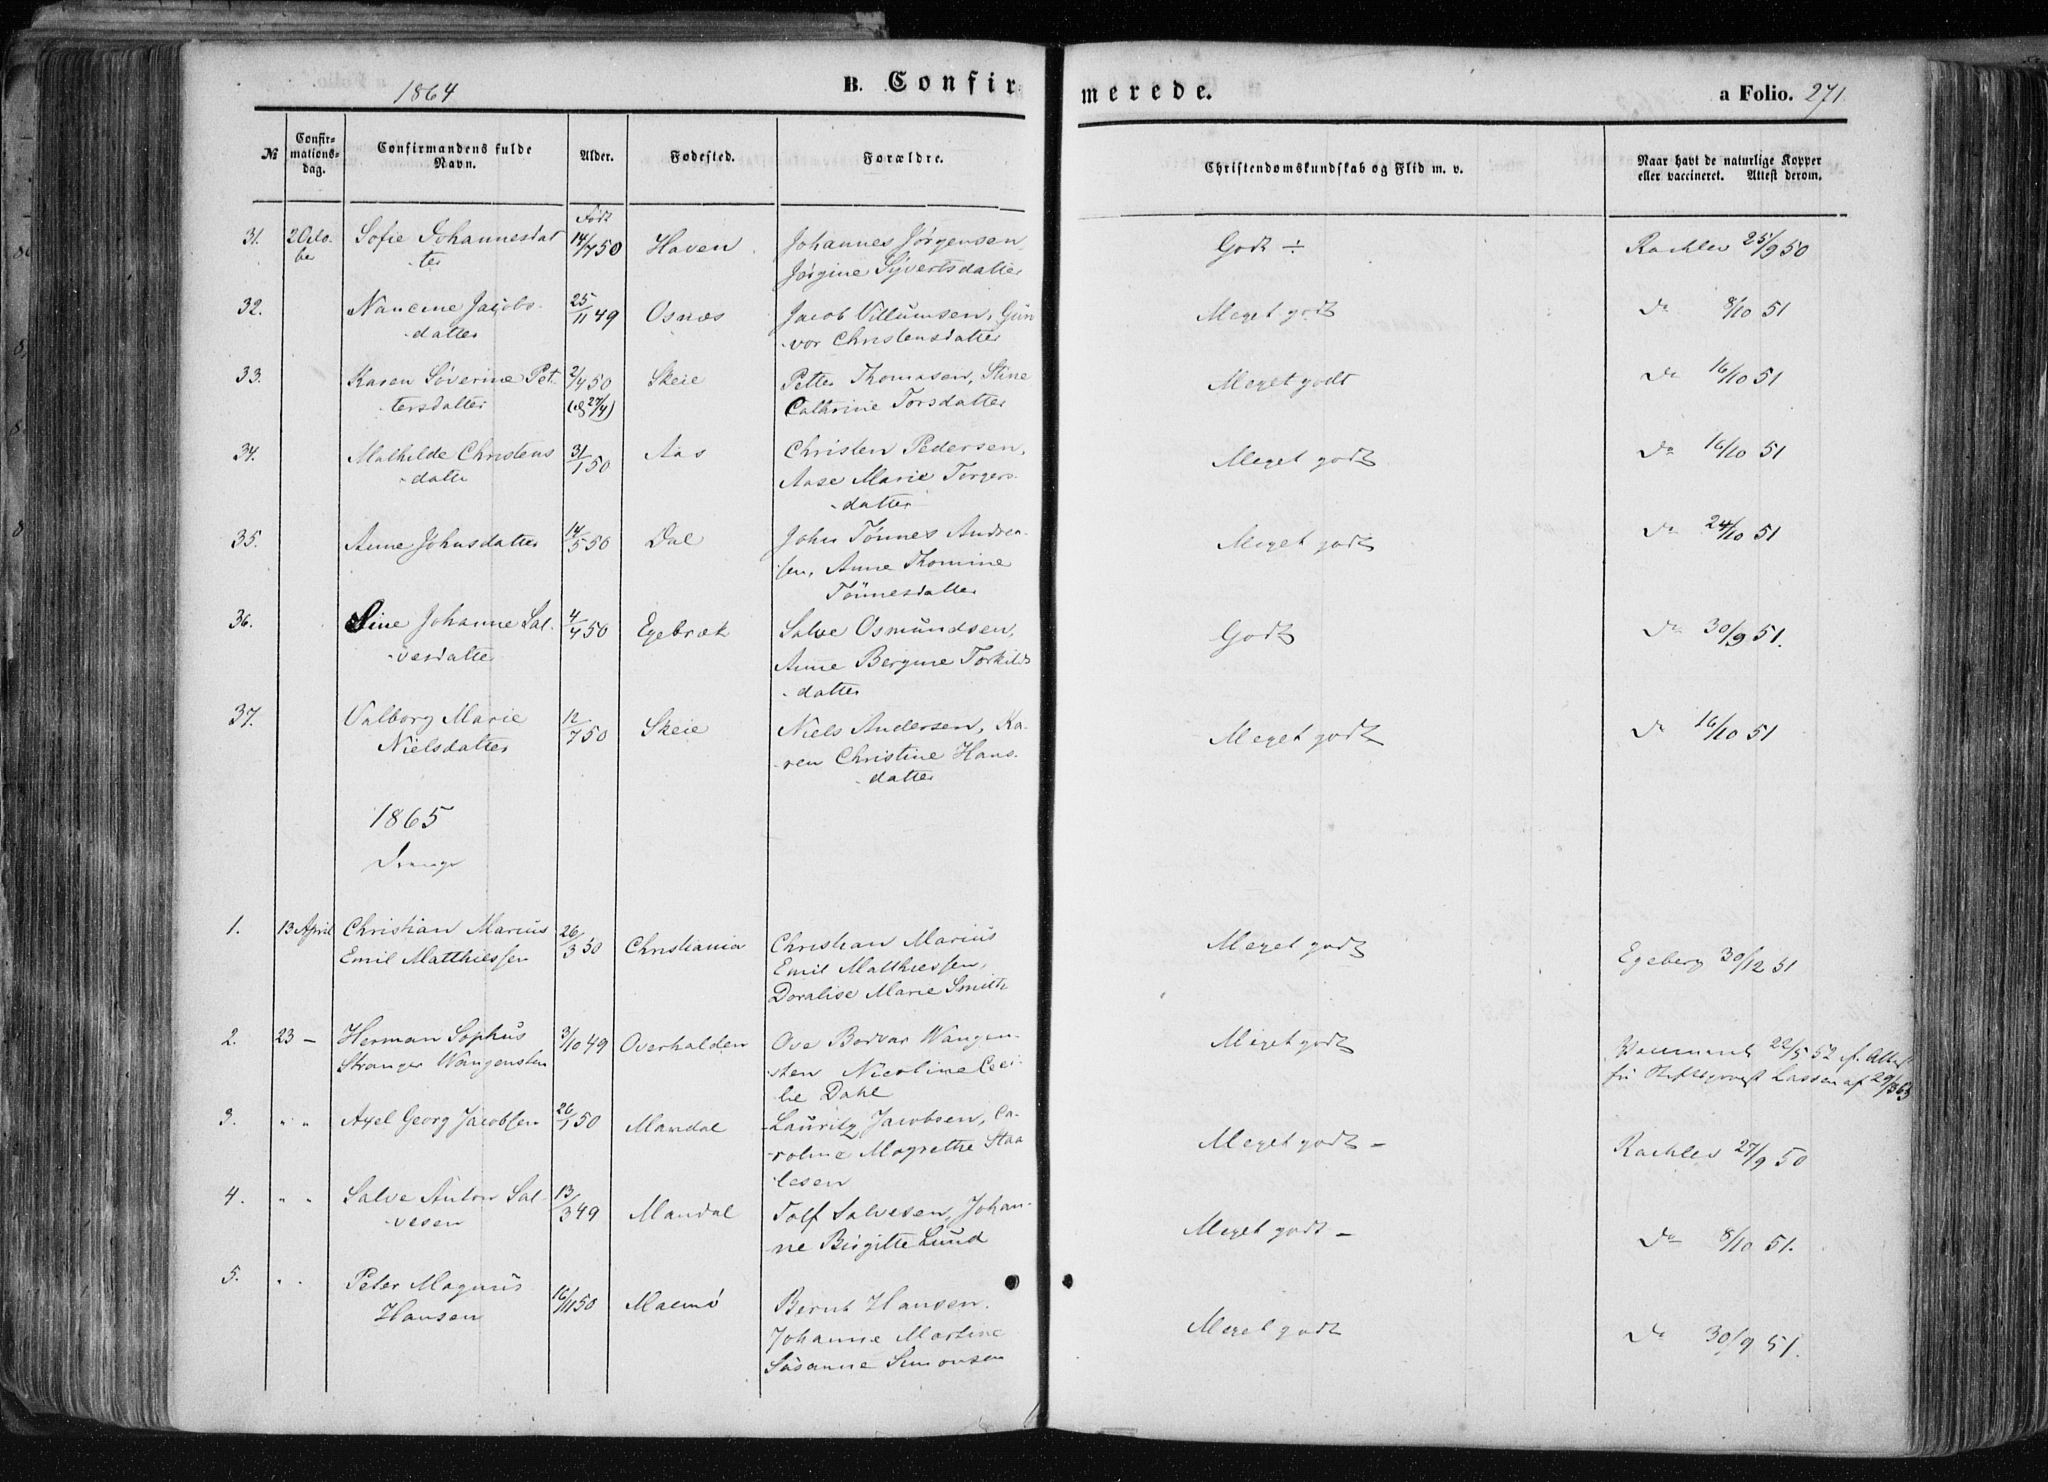 1864 B. Confirmerede. a Folio. 271
№ Confirmationsdag. Confirmandens fulde Navn. Alder. Fødested. Forældre. Christendomskundskab og Flid m. v. Naar havt de naturlige Kopper eller vaccineret. Attest derom.
Født
31. 2 Octo- Sofie Johannesdat 14/7 50 Haven Johannes Jørgensen, Godt ÷ Rachlev 25/9 50
be ter Jørgine Syvertsdatter
32. Nancine Jacobs- 25/11 49 Osnæs Jacob Villumsen, Gun Meget godt Do 8/10 51
-datter vor Christensdatter
33. Karen Søverine Pet 2/4 50 Skeie Petter Thomasen, Stine Meget godt Do 16/10 51
tersdatter (d 27/4) Cathrine Torsdatter
34. Mathilde Christens 31/1 50 Aas Christen Pedersen, Meget godt Do 16/10 51
-datter Aase Marie Torgers-
-datter
35. Anne Johnsdatter 14/5 50 Dal John Tønnes Andrea- Meget godt Do 24/10 51
sen, Anne Thomine
Tönnesdatter
36. Sine Johanne Sal- 4/4 50 Egebræk Salve Osmundsen, Godt Do 30/9 51.
-vesdatter Anne Bergine Torkilds
-datter
37. Valborg Marie 12/7 50 Skeie Niels Andersen, Ka- Meget godt Do 16/10 51
Nielsdatter -ren Christine Hans-
-datter
1865
Drenge
1. 13 April Christian Marius 26/3 50 Christiania Christian Marius Meget godt Egeberg 30/12 51
Emil Matthiessen Emil Matthiessen,
Doralise Marie Smith
2. 23 – Herman Sophus 3/10 49 Overhalden Ove Bodvar Wangen- Meget godt 22/5 52 if. Attest
Stranger Wangensten sten Nicoline Ceci- fra Stiftsprovst Lassen af 29/3 63
lie Dahl
3. " " Axel Georg Jacobsen 26/1 50 Mandal Lauritz Jacobsen, Ca- Meget godt – Rachlev 27/9 50
roline Magrethe Staa
lesen
4. " " Salve Anton Sal- 13/3 49 Mandal Tolf Salvesen, Johan- Meget godt – Do 8/10 51.
-vesen ne Birgitte Lund
5. " " Peter Magnus 16/11 50 Malmø Bernt Hansen. Meget godt Do 30/9 51.
Hansen Johanne Martine
Susanne Simonsen